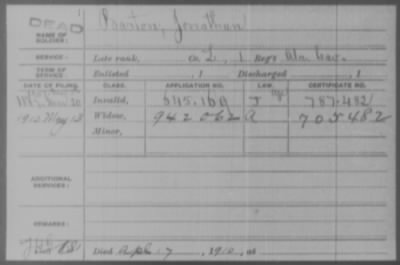 DEAD
NAME OF SOLDIER: Barton, Jonathan
SERVICE: Late rank, Co. L, 1 Reg't Ala. Cav.
TERM OF SERVICE Enlisted , 1 Discharged , 1
DATE OF FILING. CLASS. APPLICATION NO. LAW. CERTIFICATE NO.
Invalid, 645.169 J 787.482
1910 May 13 Widow, 942 062 A 705 482
Minor,
ADDITIONAL SERVICES:
REMARKS:
Died 17, 1910, at